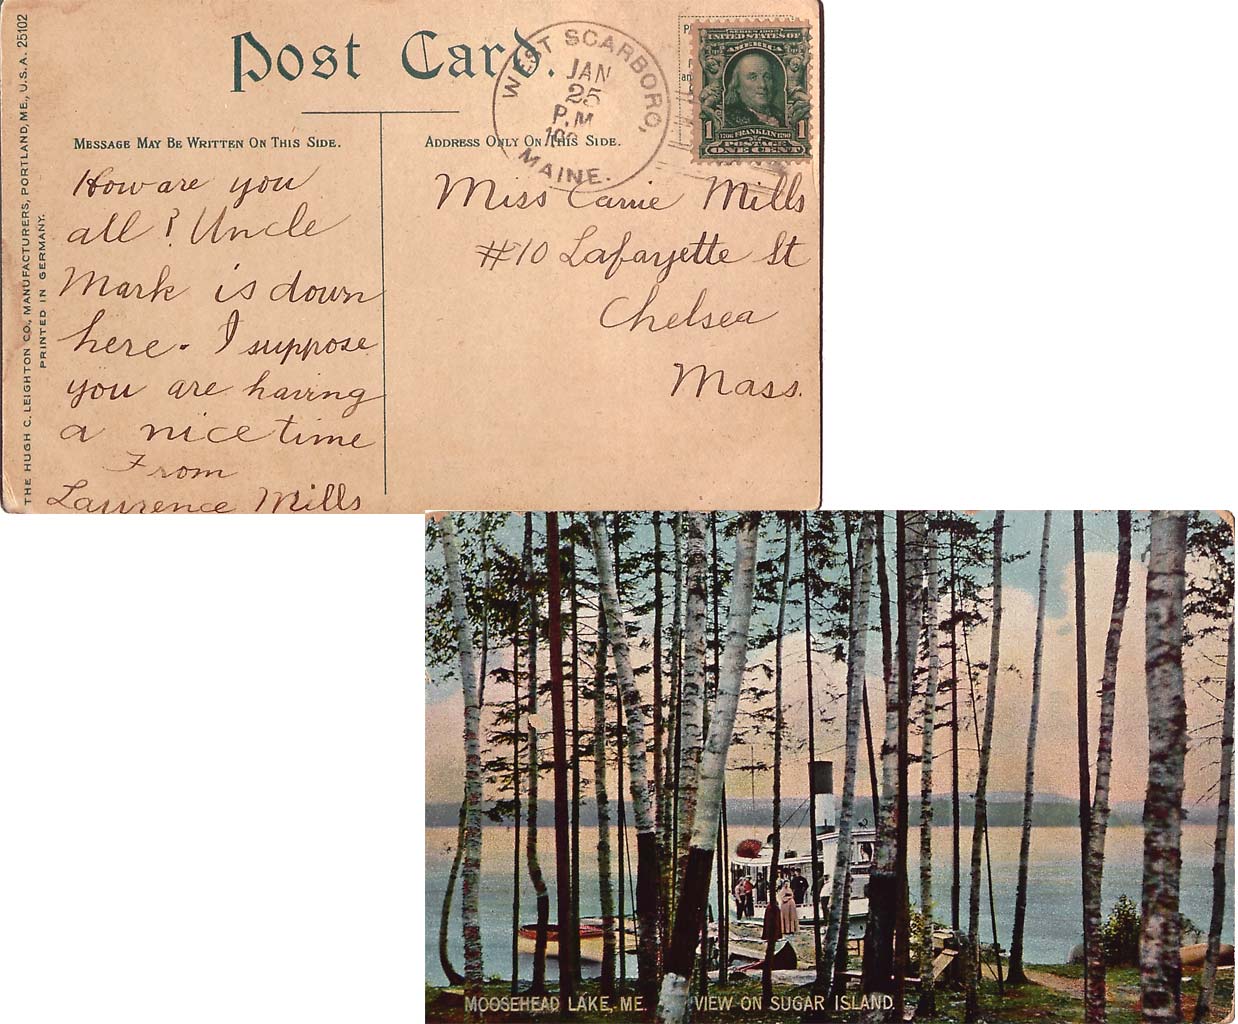 THE HUGH C. LEIGHTON CO., MANUFACTURERS, PORTLAND, ME., U.S.A. 25102
PRINTED IN GERMANY.
Post Card.
WEST SCARBORO,
JAN
25
P.M
MAINE.
SERIES 1902
UNITED STATES OF
AMERICA
1 1706 FRANKLIN 1790 1
POSTAGE
ONE CENT
MESSAGE MAY BE WRITTEN ON THIS SIDE.
How are you
all? Uncle
Mark is down
here. I suppose
you are having
a nice time
From
Laurence Mills
ADDRESS ONLY ON THIS SIDE.
Miss Carrie Mills
#10 Lafayette St
Chelsea
Mass.
MOOSEHEAD LAKE, ME. VIEW ON SUGAR ISLAND.